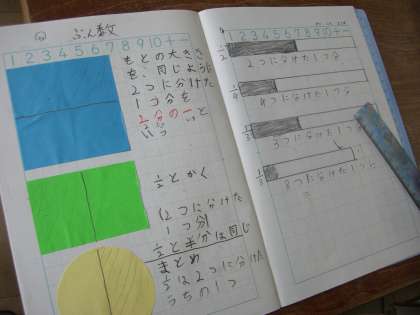 ぶん数
1 2 3 4 5 6 7 8 9 10 十 一
もとの大きさ
を、同じように
2つに分けた
1つ分を
2分の一と
いう
½とかく
(2つに分けた
1つ分)
½と半分は同じ
まとめ
½は2つに分けた
うちの1つ
1 2 3 4 5 6 7 8 9 10 十 一
½
2つにわけた1つ分
¼
4つにわけた1つ分
⅓
3つにわけた1つ分
⅛
8つにわけた1つ